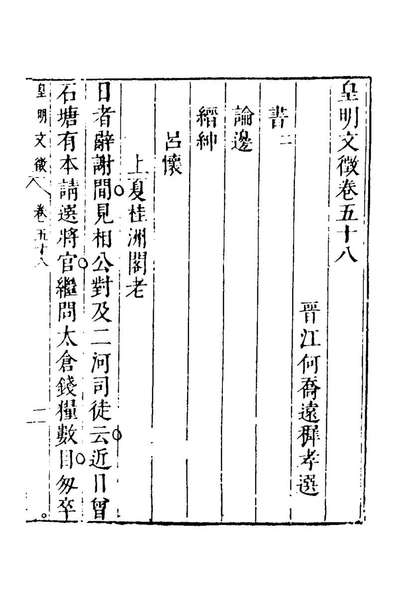 皇明文徵卷五十八
晉江何喬遠穉孝選
書二
論邊
縉紳
呂懷
上夏桂洲閣老
日者辭謝間見相公對及二河司徒云近日曾
石塘有本請選將官繼問太倉錢糧數目匆卒
皇明文徵 卷五十八 一